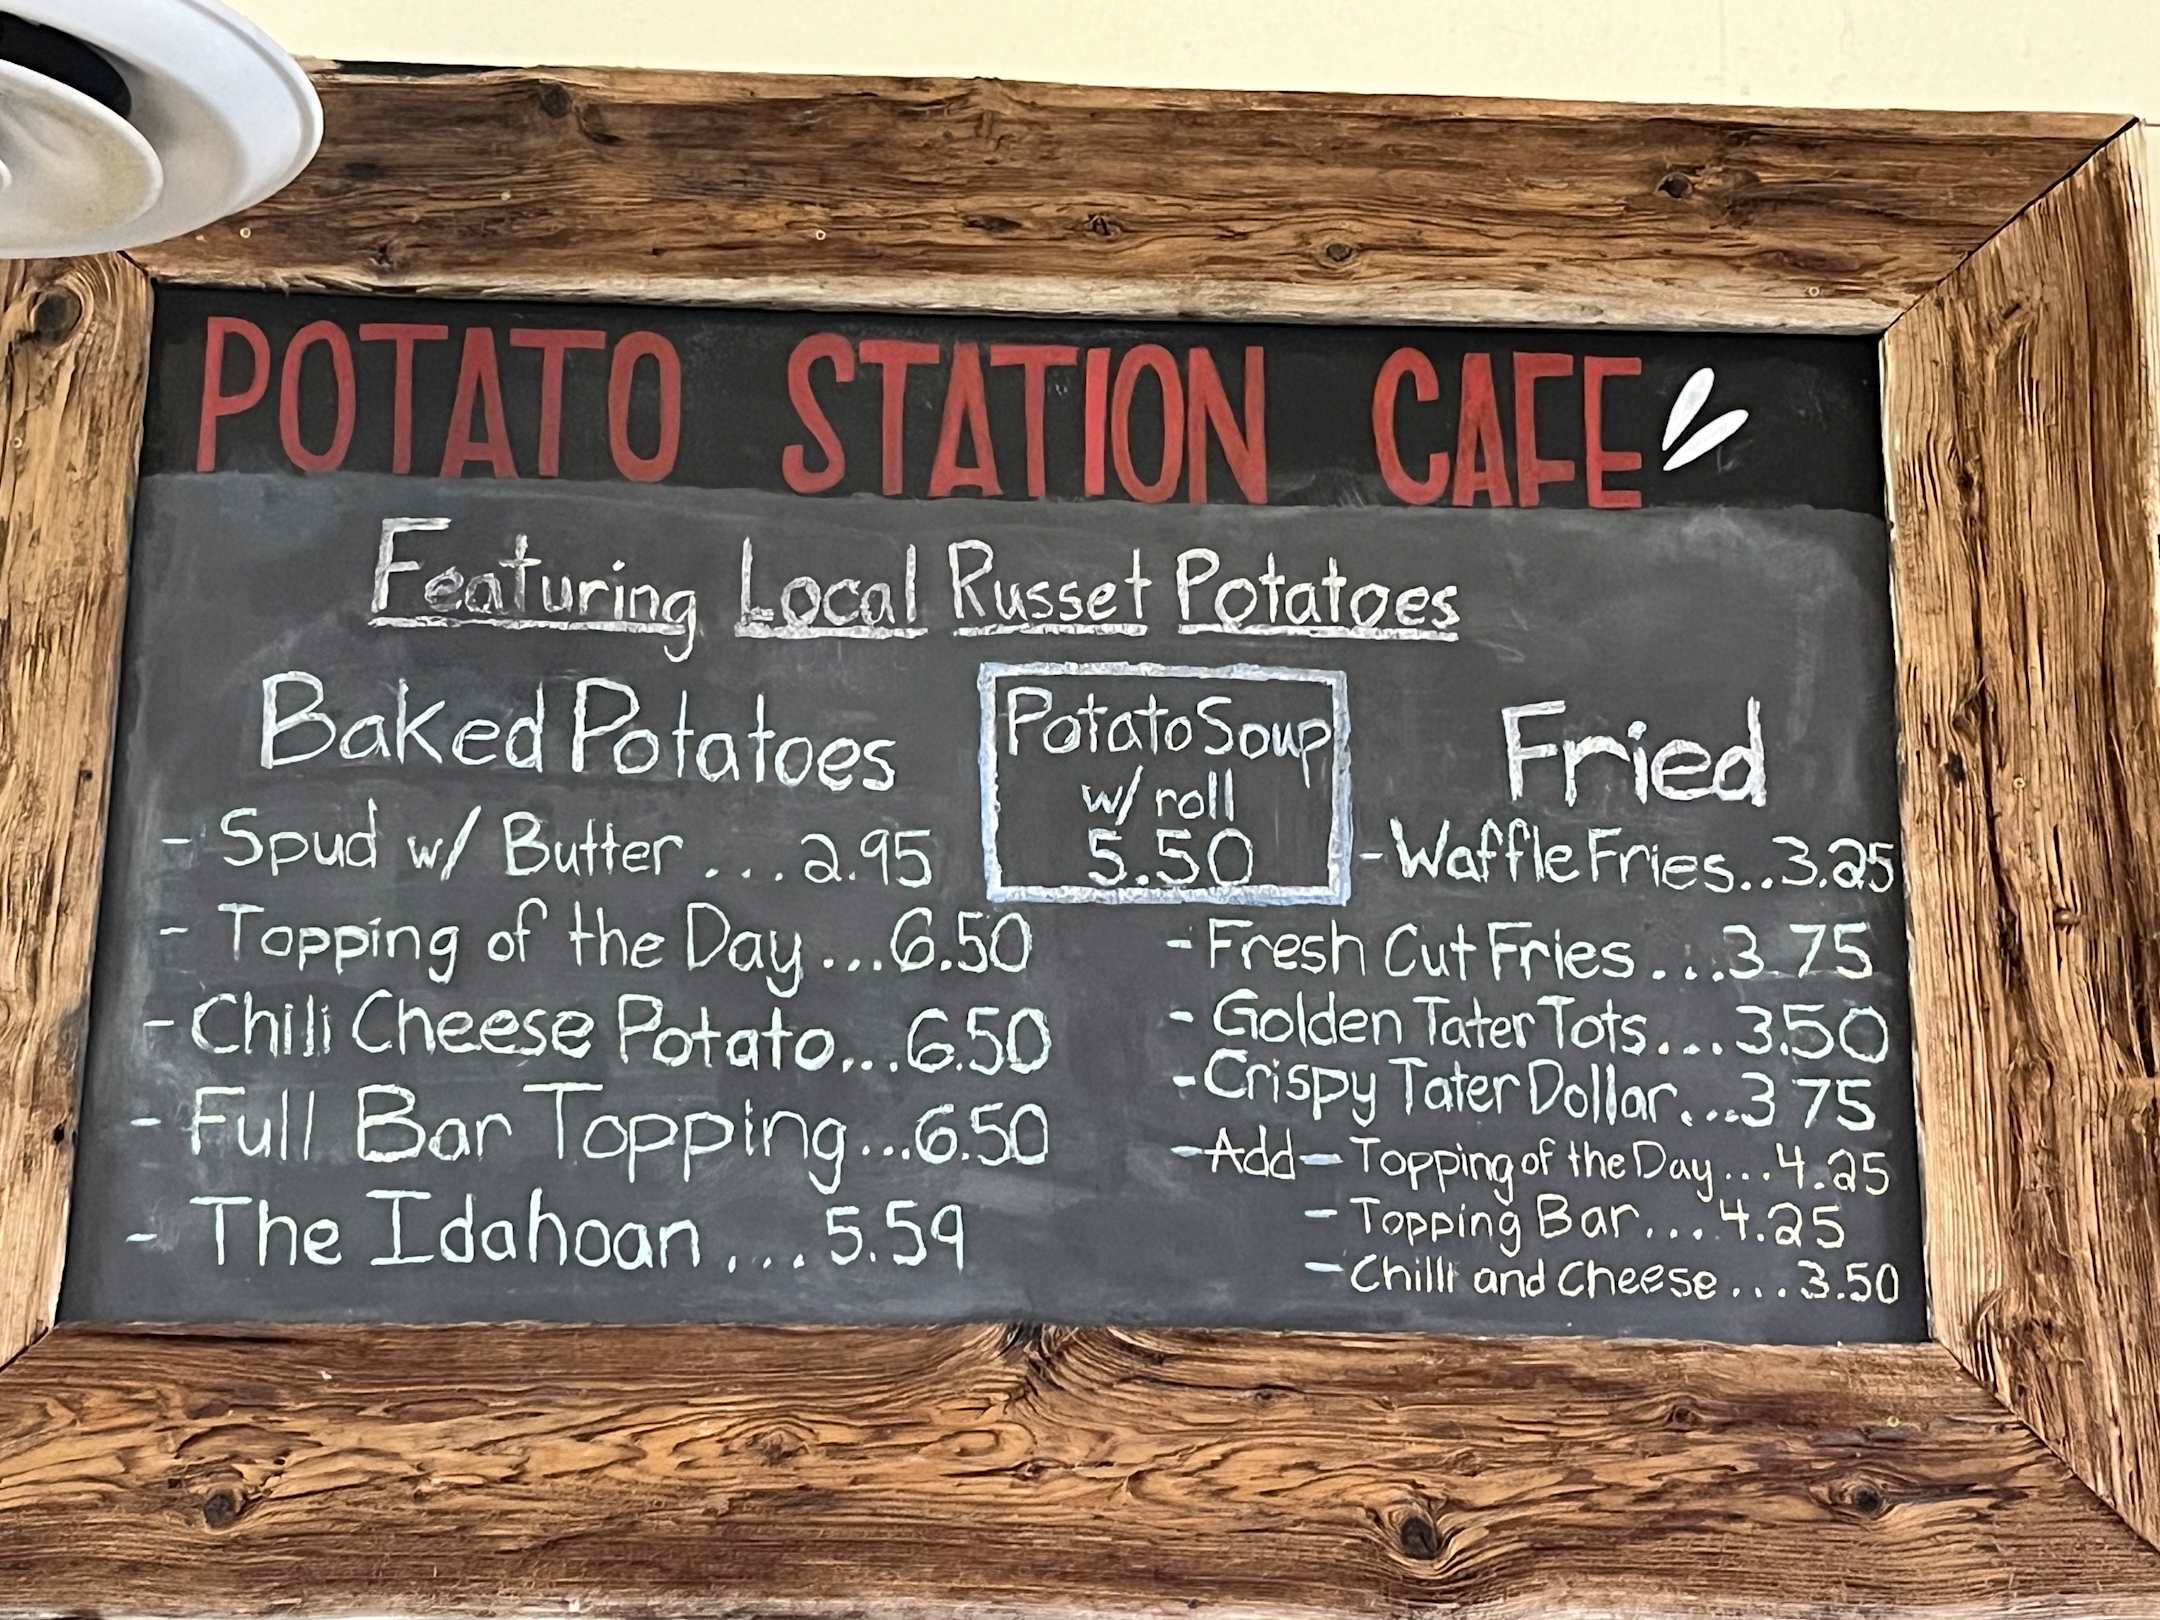 POTATO STATION CAFE
Featuring Local Russet Potatoes
Baked Potatoes
- Spud w/ Butter ... 2.95
- Topping of the Day ... 6.50
- Chili Cheese Potato... 6.50
- Full Bar Topping ... 6.50
- The Idahoan ... 5.59
Potato Soup
w/ roll
5.50
Fried
- Waffle Fries.. 3.25
- Fresh Cut Fries ... 3.75
- Golden Tater Tots ... 3.50
- Crispy Tater Dollar ... 3 75
- Add - Topping of the Day ... 4.25
- Topping Bar ... 4.25
- Chilli and Cheese ... 3.50